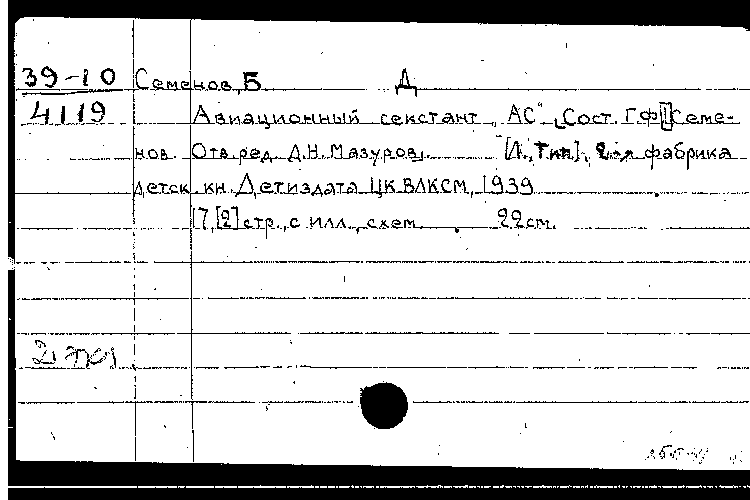 39-10 Семенов, Б Д
4119 Авиационный секстант „АС“. Сост. Г.Ф. Семе-
нов. Отв. ред. Д.Н. Мазуров. [Л., Тип]. 2-я фабрика
детск. кн. Детиздата ЦК ВЛКСМ, 1939
17, [2] стр., с илл., схем. 22 см.
2 экз.